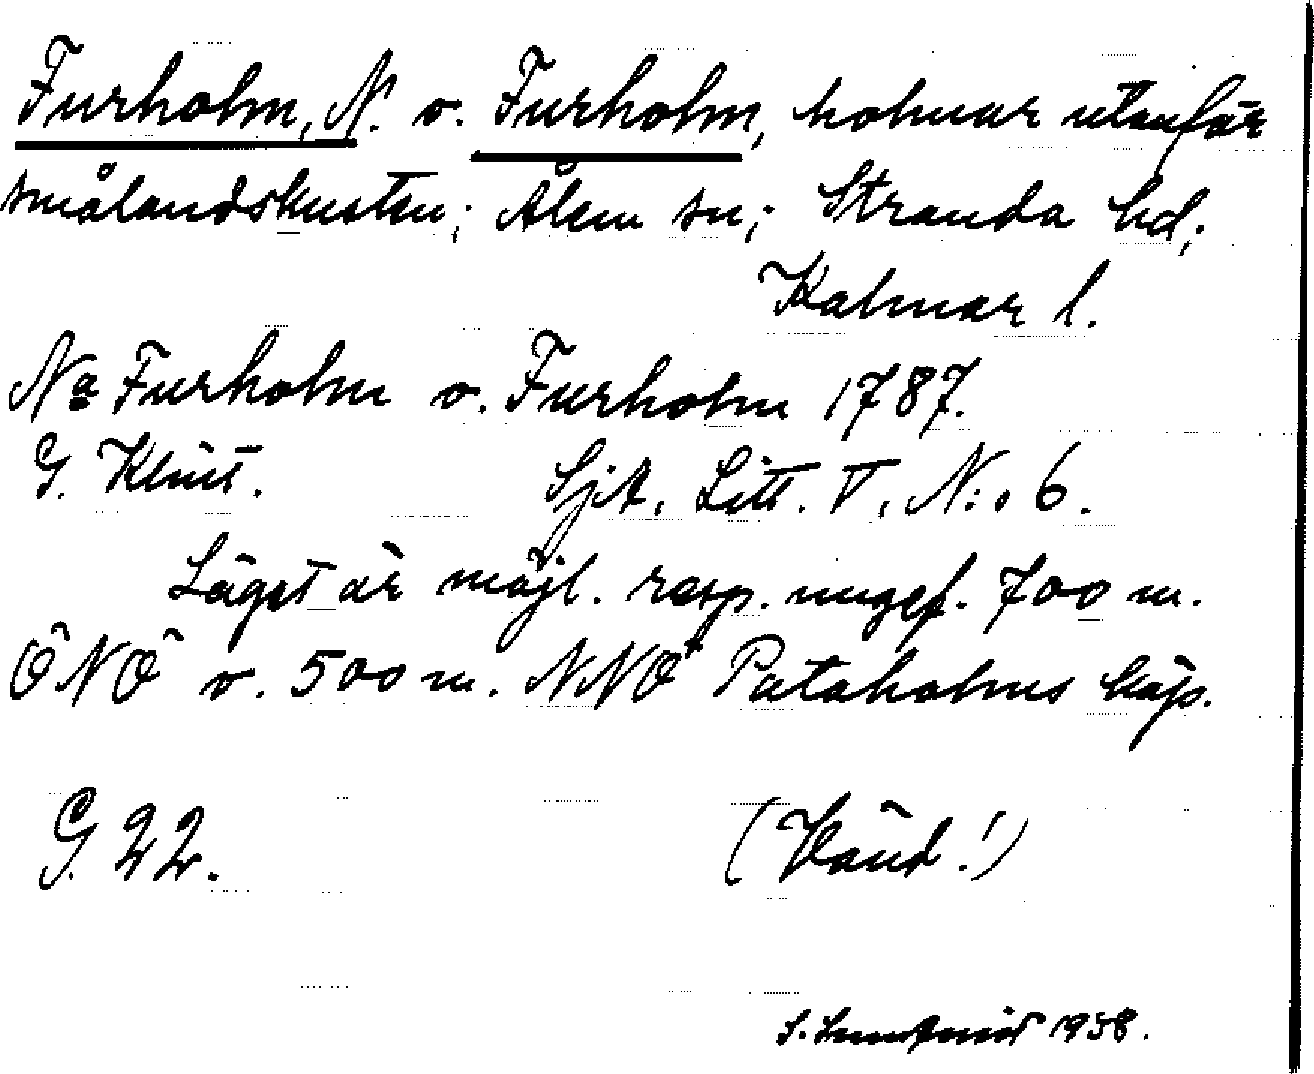 Furholm, N. o. Furholm, holmar utanför
smålandskusten; Ålem sn; Stranda hd;
Kalmar l.
Na Furholm o. Furholm 1787.
G. Klint. SjA, Litt. V, N:o 6.
Läget är möjl. resp. ungef. 700 m.
ÖNÖ o. 500 m. NNÖ Pataholms köp.
G. 22. (Vänd!)
S. 1958.